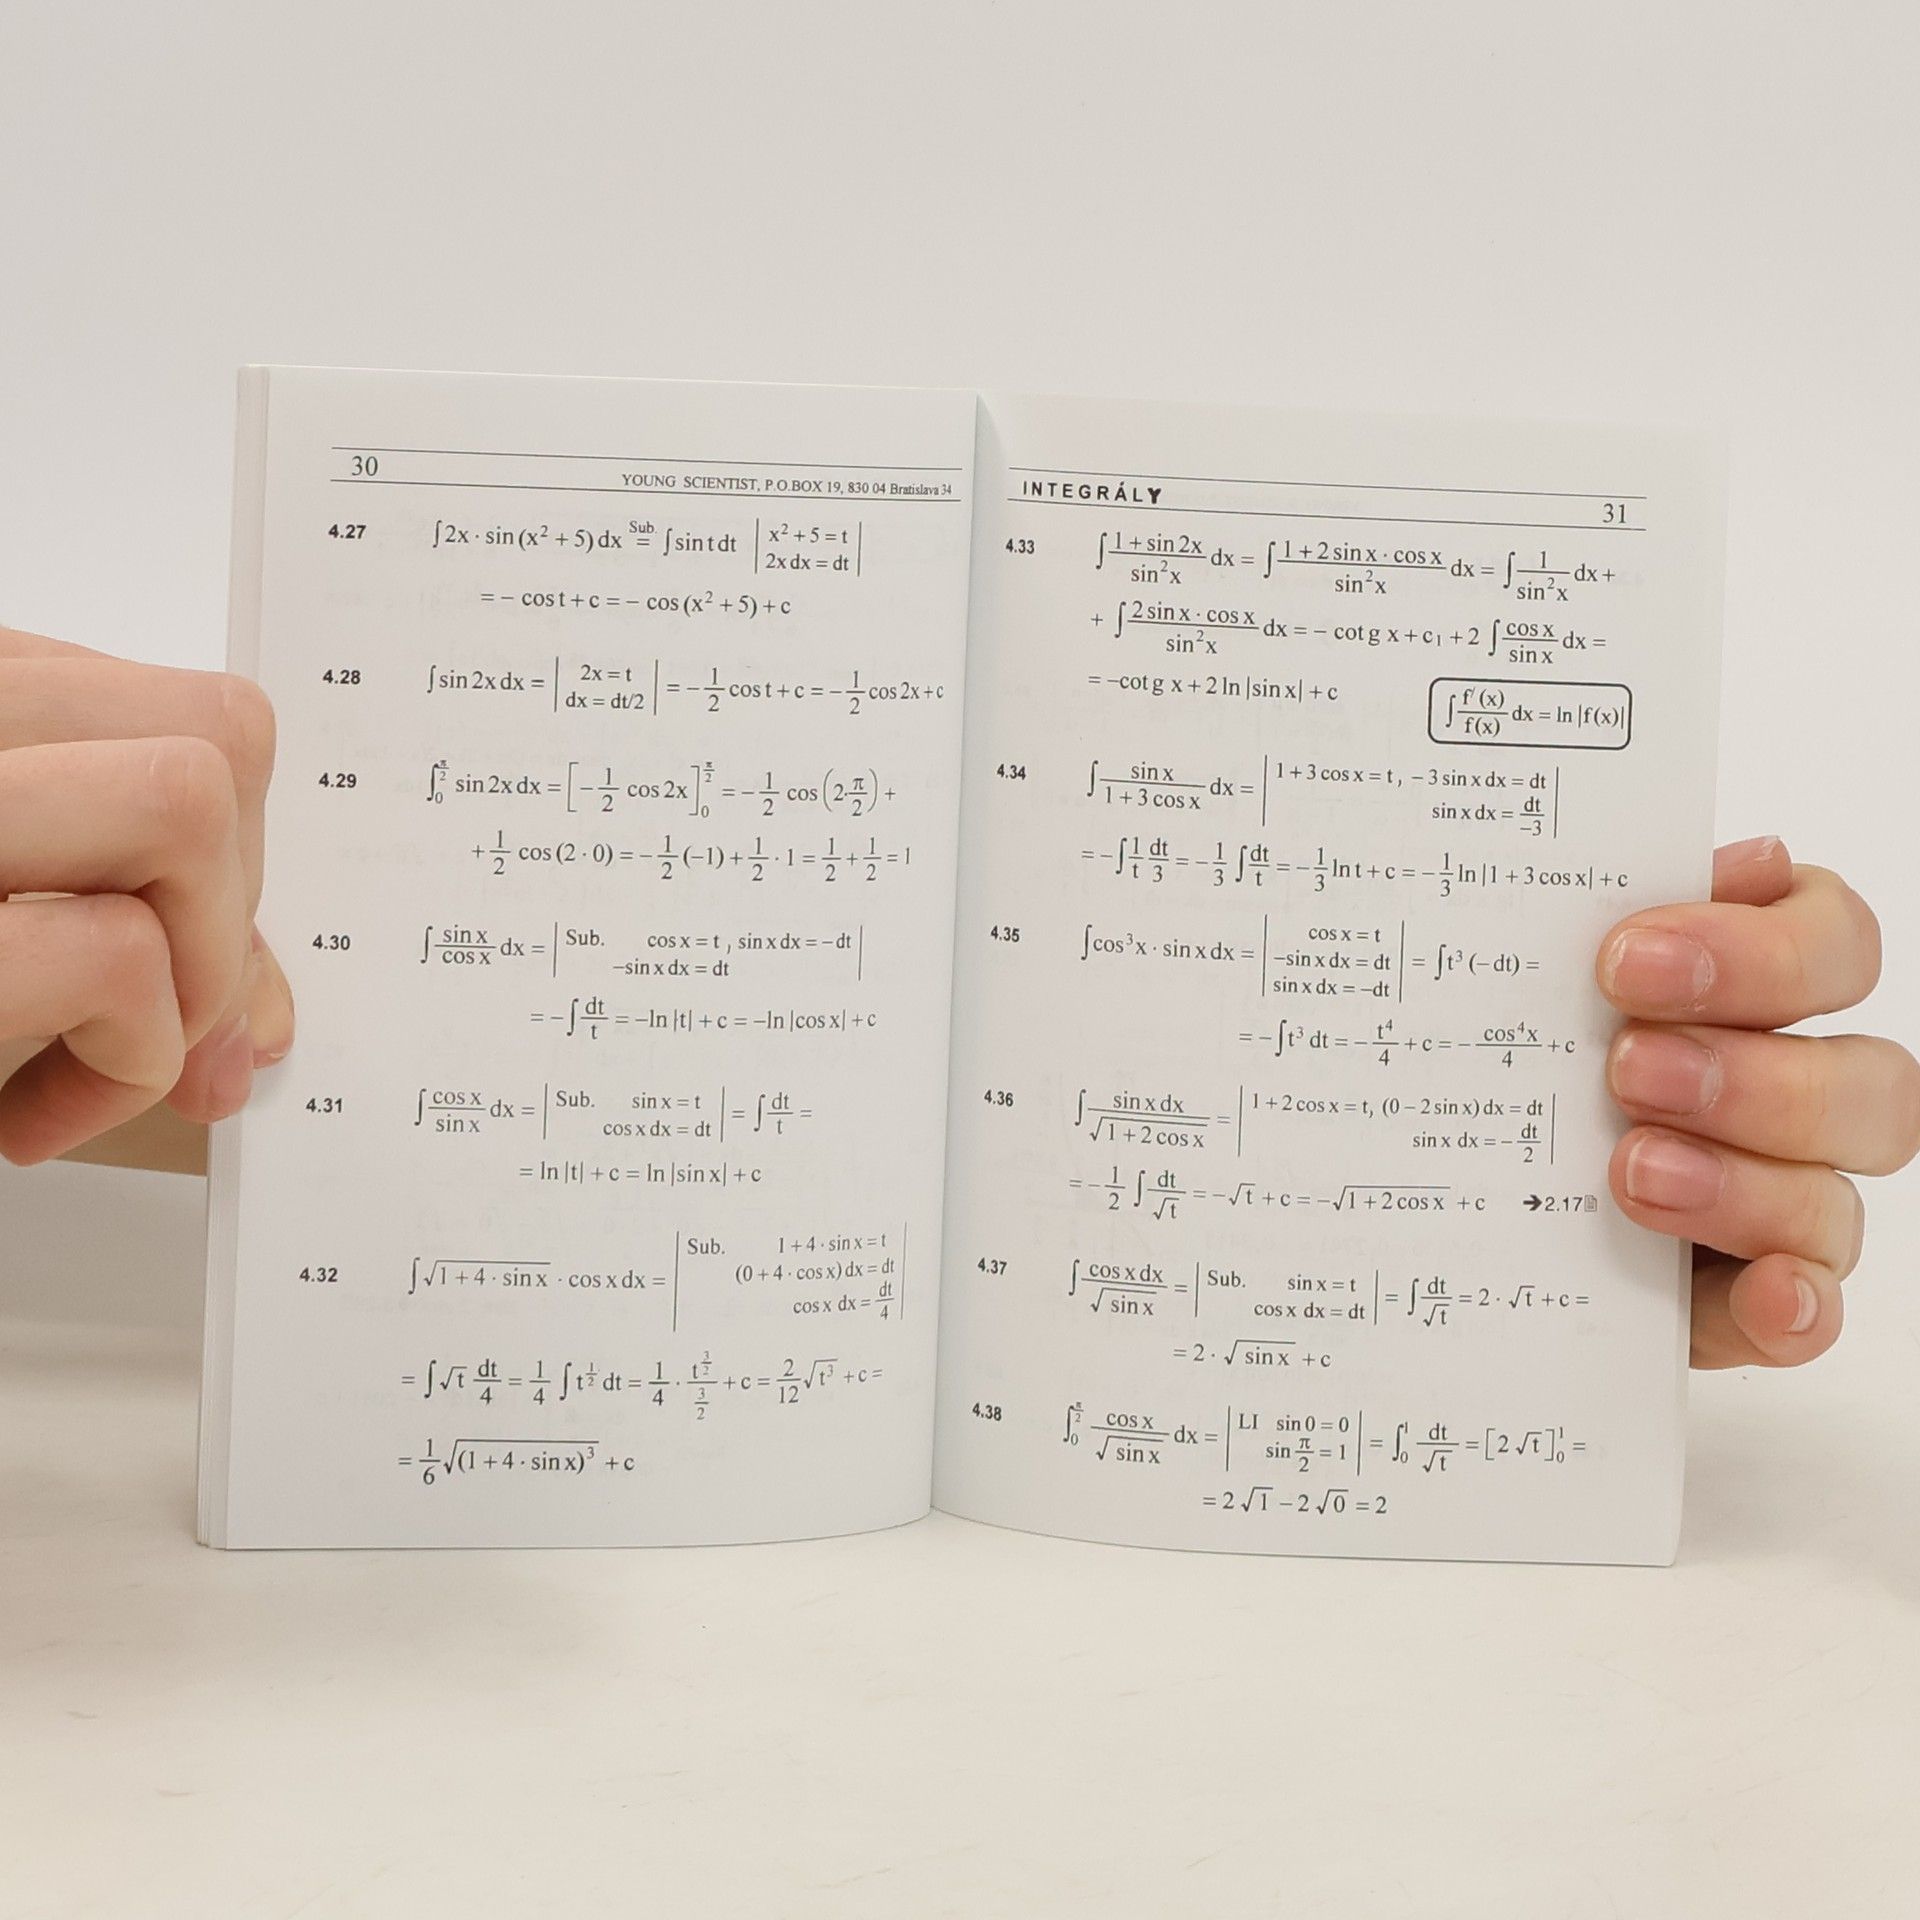 30
YOUNG SCIENTIST, P.O.BOX 19, 830 04 Bratislava 34
4.27 ∫2x · sin (x² + 5) dx =(Sub.) ∫sin t dt | x² + 5 = t ; 2x dx = dt |
= − cos t + c = − cos (x² + 5) + c
4.28 ∫sin 2x dx = | 2x = t ; dx = dt/2 | = −1/2 cos t + c = −1/2 cos 2x + c
4.29 ∫₀^(π/2) sin 2x dx = [−1/2 cos 2x]₀^(π/2) = −1/2 cos (2·π/2) +
+ 1/2 cos (2 · 0) = −1/2 (−1) + 1/2 · 1 = 1/2 + 1/2 = 1
4.30 ∫ sin x / cos x dx = | Sub. cos x = t , sin x dx = −dt ; −sin x dx = dt |
= −∫ dt/t = −ln |t| + c = −ln |cos x| + c
4.31 ∫ cos x / sin x dx = | Sub. sin x = t ; cos x dx = dt | = ∫ dt/t =
= ln |t| + c = ln |sin x| + c
4.32 ∫√(1 + 4 · sin x) · cos x dx = | Sub. 1 + 4 · sin x = t ; (0 + 4 · cos x) dx = dt ; cos x dx = dt/4 |
= ∫√t dt/4 = 1/4 ∫ t^(1/2) dt = 1/4 · t^(3/2) / (3/2) + c = 2/12 √(t³) + c =
= 1/6 √((1 + 4 · sin x)³) + c
INTEGRÁLY 31
4.33 ∫ (1 + sin 2x) / sin²x dx = ∫ (1 + 2 sin x · cos x) / sin²x dx = ∫ 1 / sin²x dx +
+ ∫ (2 sin x · cos x) / sin²x dx = − cotg x + c₁ + 2 ∫ cos x / sin x dx =
= −cotg x + 2 ln |sin x| + c
∫ f′(x) / f(x) dx = ln |f(x)|
4.34 ∫ sin x / (1 + 3 cos x) dx = | 1 + 3 cos x = t , − 3 sin x dx = dt ; sin x dx = dt/−3 |
= −∫ 1/t dt/3 = −1/3 ∫ dt/t = −1/3 ln t + c = −1/3 ln |1 + 3 cos x| + c
4.35 ∫cos³x · sin x dx = | cos x = t ; −sin x dx = dt ; sin x dx = −dt | = ∫t³ (−dt) =
= −∫t³ dt = −t⁴/4 + c = −cos⁴x/4 + c
4.36 ∫ sin x dx / √(1 + 2 cos x) = | 1 + 2 cos x = t, (0 − 2 sin x) dx = dt ; sin x dx = −dt/2 |
= −1/2 ∫ dt/√t = −√t + c = −√(1 + 2 cos x) + c ➔2.17
4.37 ∫ cos x dx / √(sin x) = | Sub. sin x = t ; cos x dx = dt | = ∫ dt/√t = 2 · √t + c =
= 2 · √(sin x) + c
4.38 ∫₀^(π/2) cos x / √(sin x) dx = | LI sin 0 = 0 ; sin π/2 = 1 | = ∫₀¹ dt/√t = [2 √t]₀¹ =
= 2 √1 − 2 √0 = 2